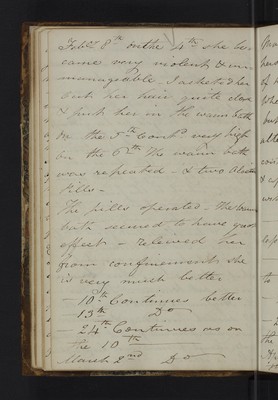 Feby 8th on the 4th she be-
came very violent & un-
manageable. I
cut her hair quite close
& put her in the warm bath
On the 5th Cont'd very high
On the 6th The warm bath
was repeated - & two
Pills -
The pills operated - The warm
bath seemed to have good
effect - released her
from confinement she
is very much better
- 10th Continues better
- 13th Do
- 24th Continues as on
the 10th
March 2nd Do